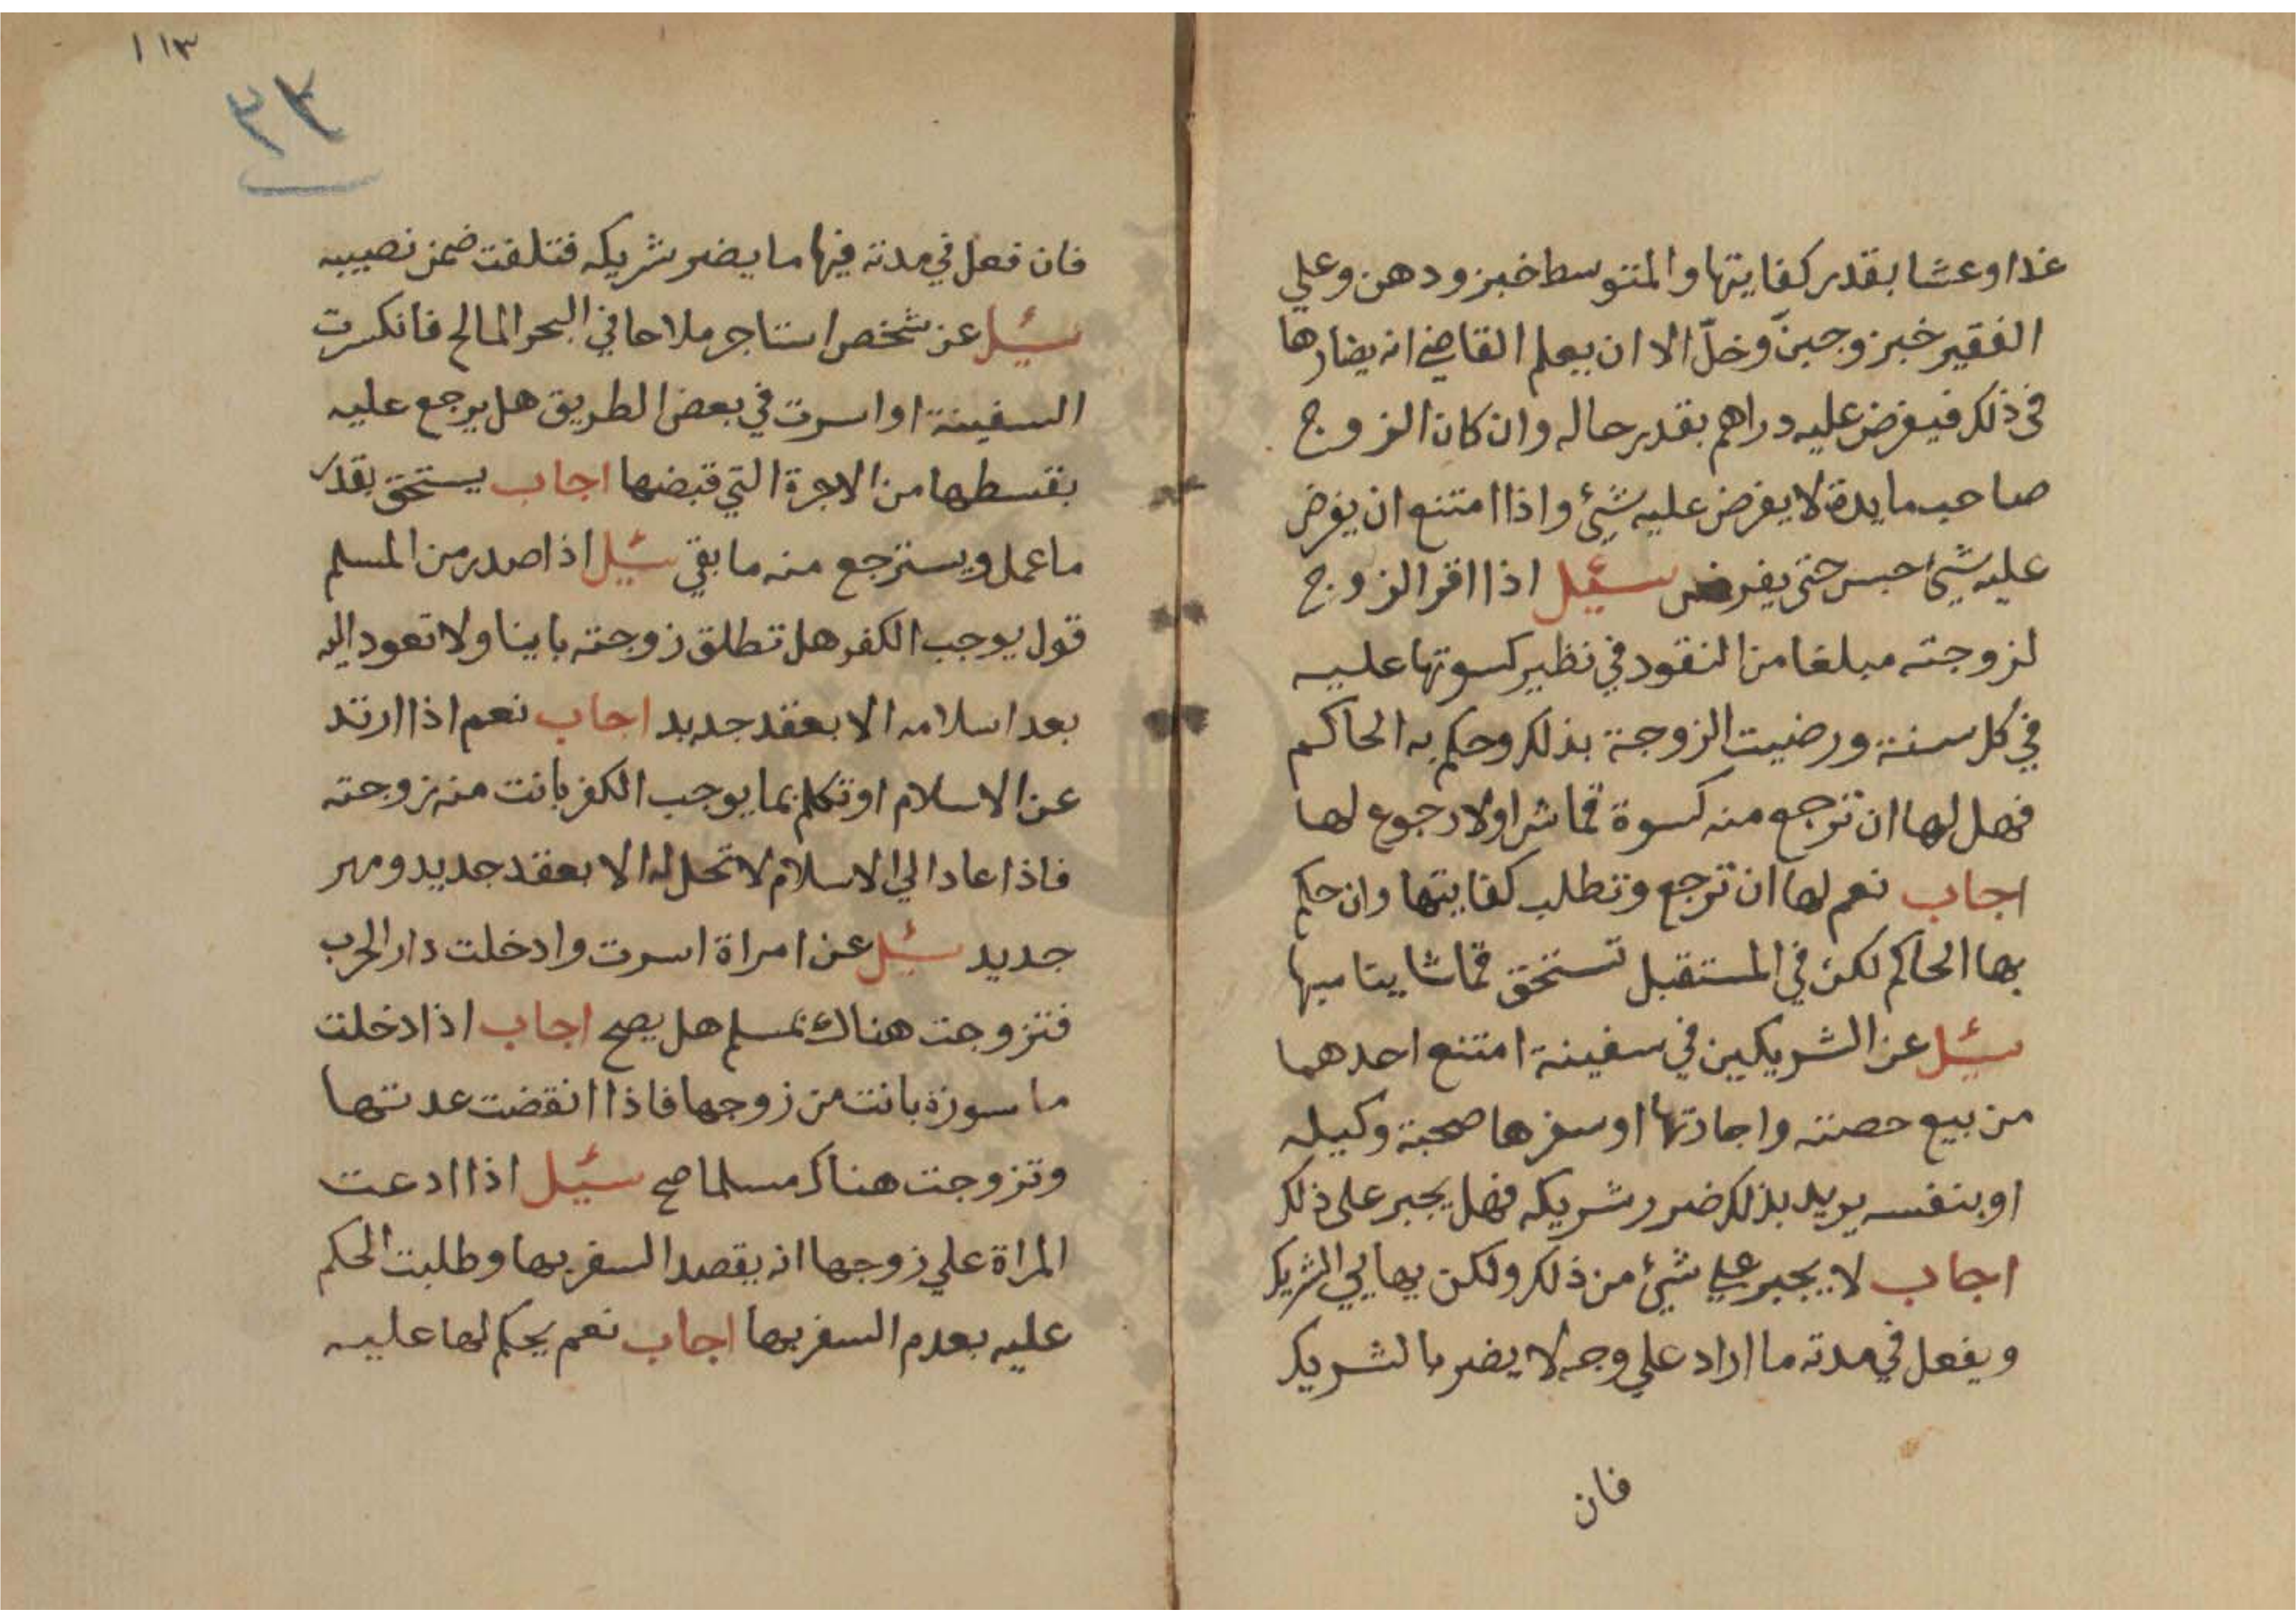 غدا وعشا بقدر كفايتها والمتوسط خبز ودهن وعلي
الفقير خبز وجبن وخلّ الا ان يعلم القاضي انه يضارها
في ذلك فيفرض عليه دراهم بقدر حاله وان كان الزوج
صاحب مايدة لا يفرض عليه شيئ واذا امتنع ان يفرض
عليه شيئ حبس حتى يفرض سئيل اذا اقر الزوج
لزوجته مبلغا من النقود في نظير كسوتها عليه
في كل سنة ورضيت الزوجة بذلك وحكم به الحاكم
فهل لها ان ترجع منه كسوة قماش او لا رجوع لها
اجاب نعم لها ان ترجع وتطلب كفايتها وان حكم
بها الحاكم لكن في المستقبل تستحق قماشا يناسبها
سئيل عن الشريكين في سفينة امتنع احدهما
من بيع حصته واجارتها او سفرها صحبة وكيله
او بنفسه يريد بذلك ضرر شريكه فهل يجبر على ذلك
اجاب لا يجبر علي شيئ من ذلك ولكن يهايي الشريك
ويفعل في مدته ما اراد علي وجه لا يضر بالشريك
فان
١١٣
٢٣
فان فعل في مدته فيها ما يضر شريكه فتلفت ضمن نصيبه
سئيل عن شخص استاجر ملاحا في البحر المالح فانكسرت
السفينة او اسرت في بعض الطريق هل يرجع عليه
بقسطها من الاجرة التي قبضها اجاب يستحق بقدر
ما عمل ويسترجع منه ما بقي سئيل اذا صدر من المسلم
قول يوجب الكفر هل تطلق زوجته باينا ولا تعود اليه
بعد اسلامه الا بعقد جديد اجاب نعم اذا ارتد
عن الاسلام او تكلم بما يوجب الكفر بانت منه زوجته
فاذا عاد الي الاسلام لا تحل له الا بعقد جديد ومهر
جديد سئيل عن امراة اسرت وادخلت دار الحرب
فتزوجت هناك بمسلم هل يصح اجاب اذا دخلت
ماسورة بانت من زوجها فاذا انقضت عدتها
وتزوجت هناك مسلما صح سئيل اذا ادعت
المراة علي زوجها انه يقصد السفر بها وطلبت الحكم
عليه بعدم السفر بها اجاب نعم يحكم لها عليه